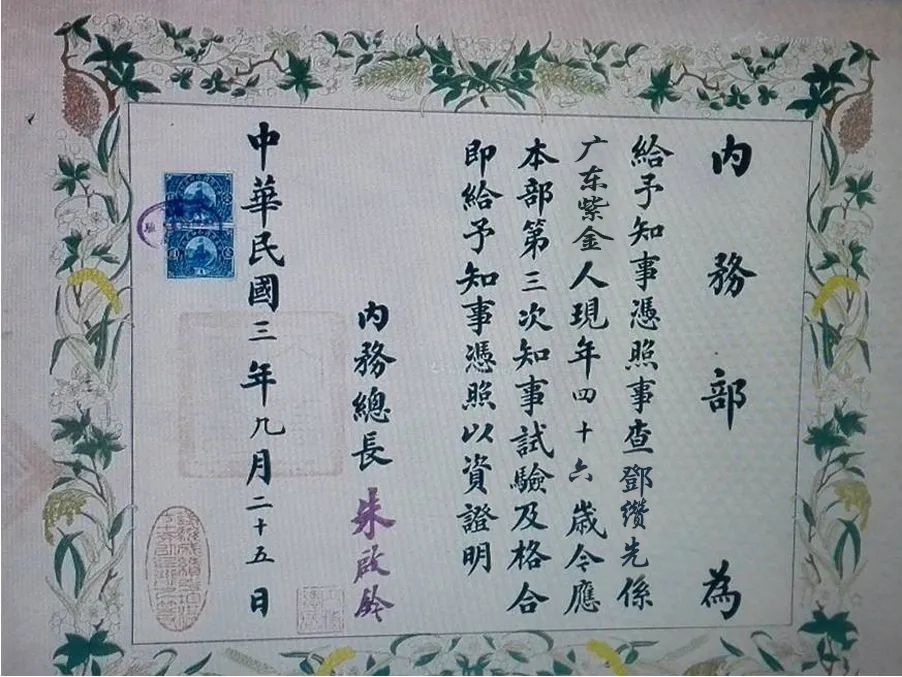 內務部為
給予知事憑照事查鄧纘先係
广东紫金人現年四十六歲今應
本部第三次知事試驗及格合
即給予知事憑照以資證明
內務總長 朱啟鈐
中華民國三年九月二十五日